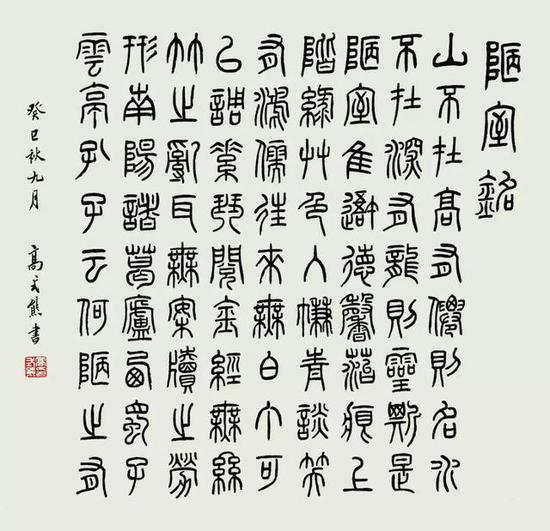 陋室銘
山不在高有僊則名水
不在深有龍則靈斯是
陋室隹吾德馨菭痕上
階綠艸色入㡘青談笑
有鴻儒往來無白丁可
以調素琴閱金經無絲
竹之亂耳無案牘之勞
形南陽諸葛廬西蜀子
雲亭孔子云何陋之有
癸巳秋九月 高式熊書